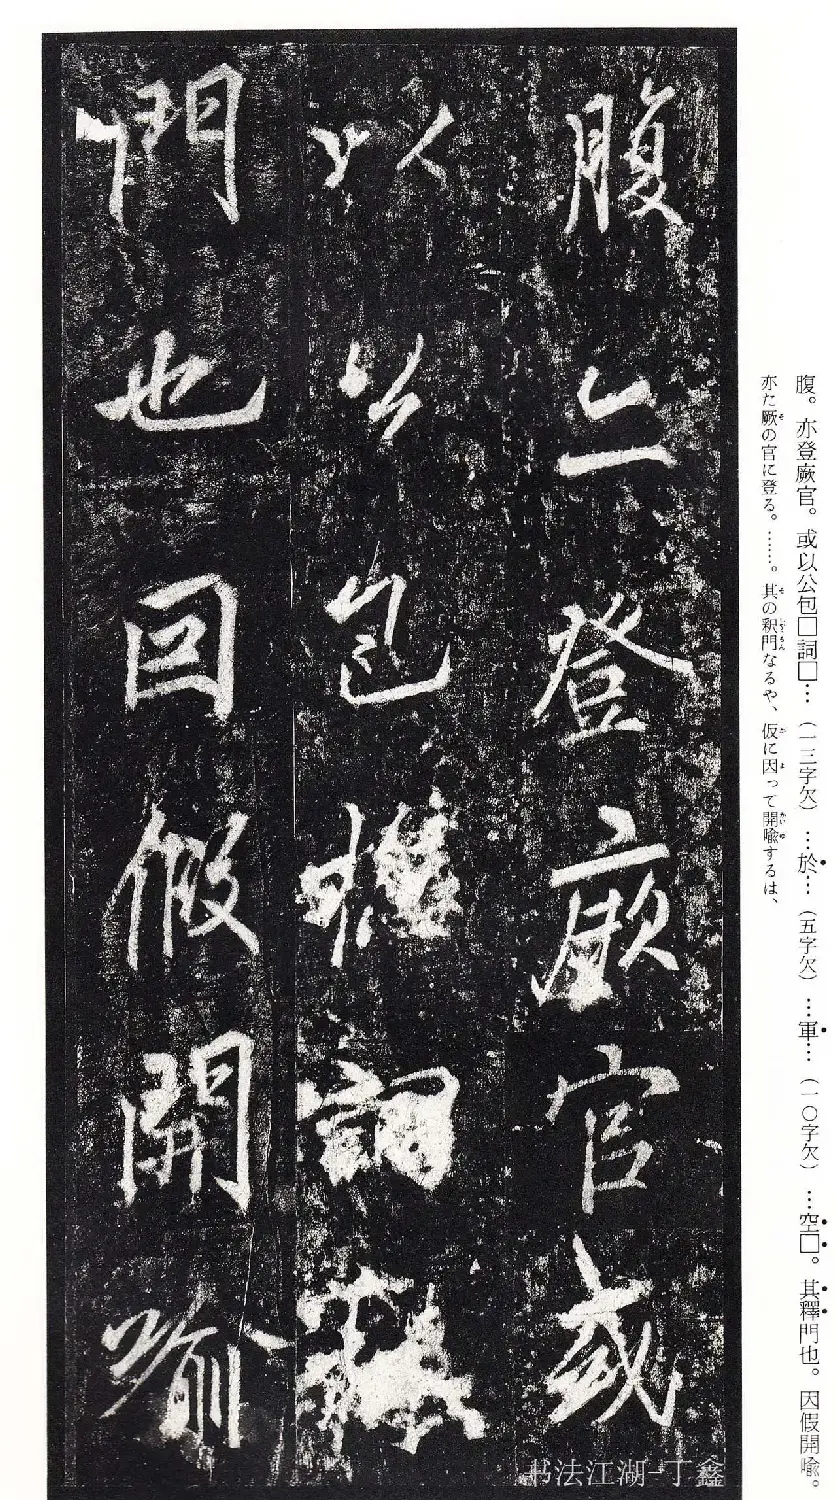 腹。亦登厥官。或以公包□詞□…（一三字欠）…於…（五字欠）…軍…（一〇字欠）…空□。其釋門也。因假開喩。
亦た厥の官に登る。……。其の釈門なるや、仮に因って開喩するは、
腹亦登厥官或
以公包詞
門也因假開喻
书法江湖-丁鑫